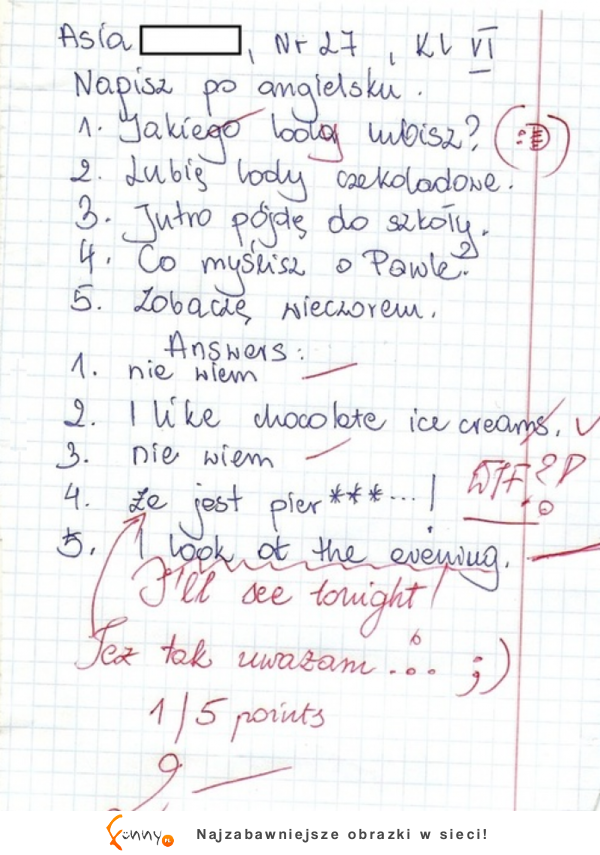 Asia , Nr 27 , KL VI
Napisz po angielsku.
1. Jakiego loda lubisz?
2. Lubię lody czekoladowe.
3. Jutro pójdę do szkoły.
4. Co myślisz o Pawle?
5. Zobaczę wieczorem.
Answers:
1. nie wiem
2. I like chocolate ice creams.
3. nie wiem
WTF?
4. Że jest pier***...!
5. I look at the evening.
I'll see tonight!
Też tak uważam... ;)
1/5 points
funny.pl Najzabawniejsze obrazki w sieci!